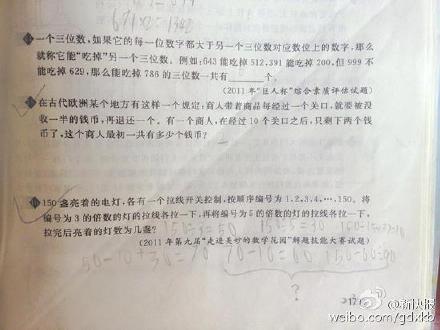 一个三位数,如果它的每一位数字都大于另一个三位数对应数位上的数字,那么
就称它能“吃掉”另一个三位数,例如:643能吃掉512,391能吃掉200,但999不
能吃掉629,那么能吃掉786的三位数一共有________个。
(2011年“巨人杯”综合素质评估试题)
在古代欧洲某个地方有这样一个规定:商人带着商品每经过一个关口,就要被没
收一半的钱币,再退还一个。有一个商人,在经过10个关口之后,只剩下两个钱
币了,这个商人最初一共有多少个钱币?
150盏亮着的电灯,各有一个拉线开关控制,按顺序编号为1,2,3,4,…,150。将
编号为3的倍数的灯的拉线各拉一下,再将编号为5的倍数的灯的拉线各拉一下,
拉完后亮着的灯数为几盏?
(2011年第九届“走进美妙的数学花园”解题技能大赛试题)
150÷3=50 150÷5=30
50-10+30=70 70-10=60 150-60=90
?
171
@新快报
weibo.com/gdxkb